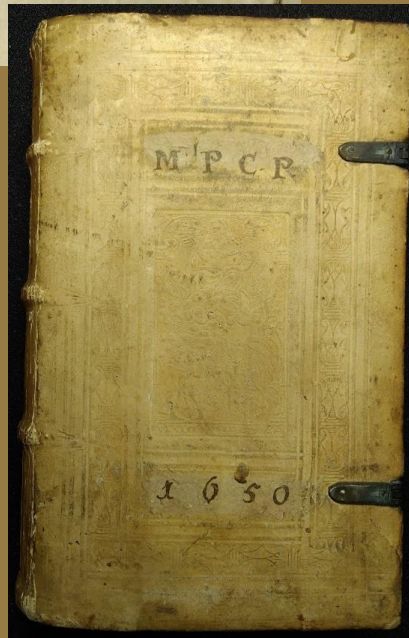 M P C P
1650